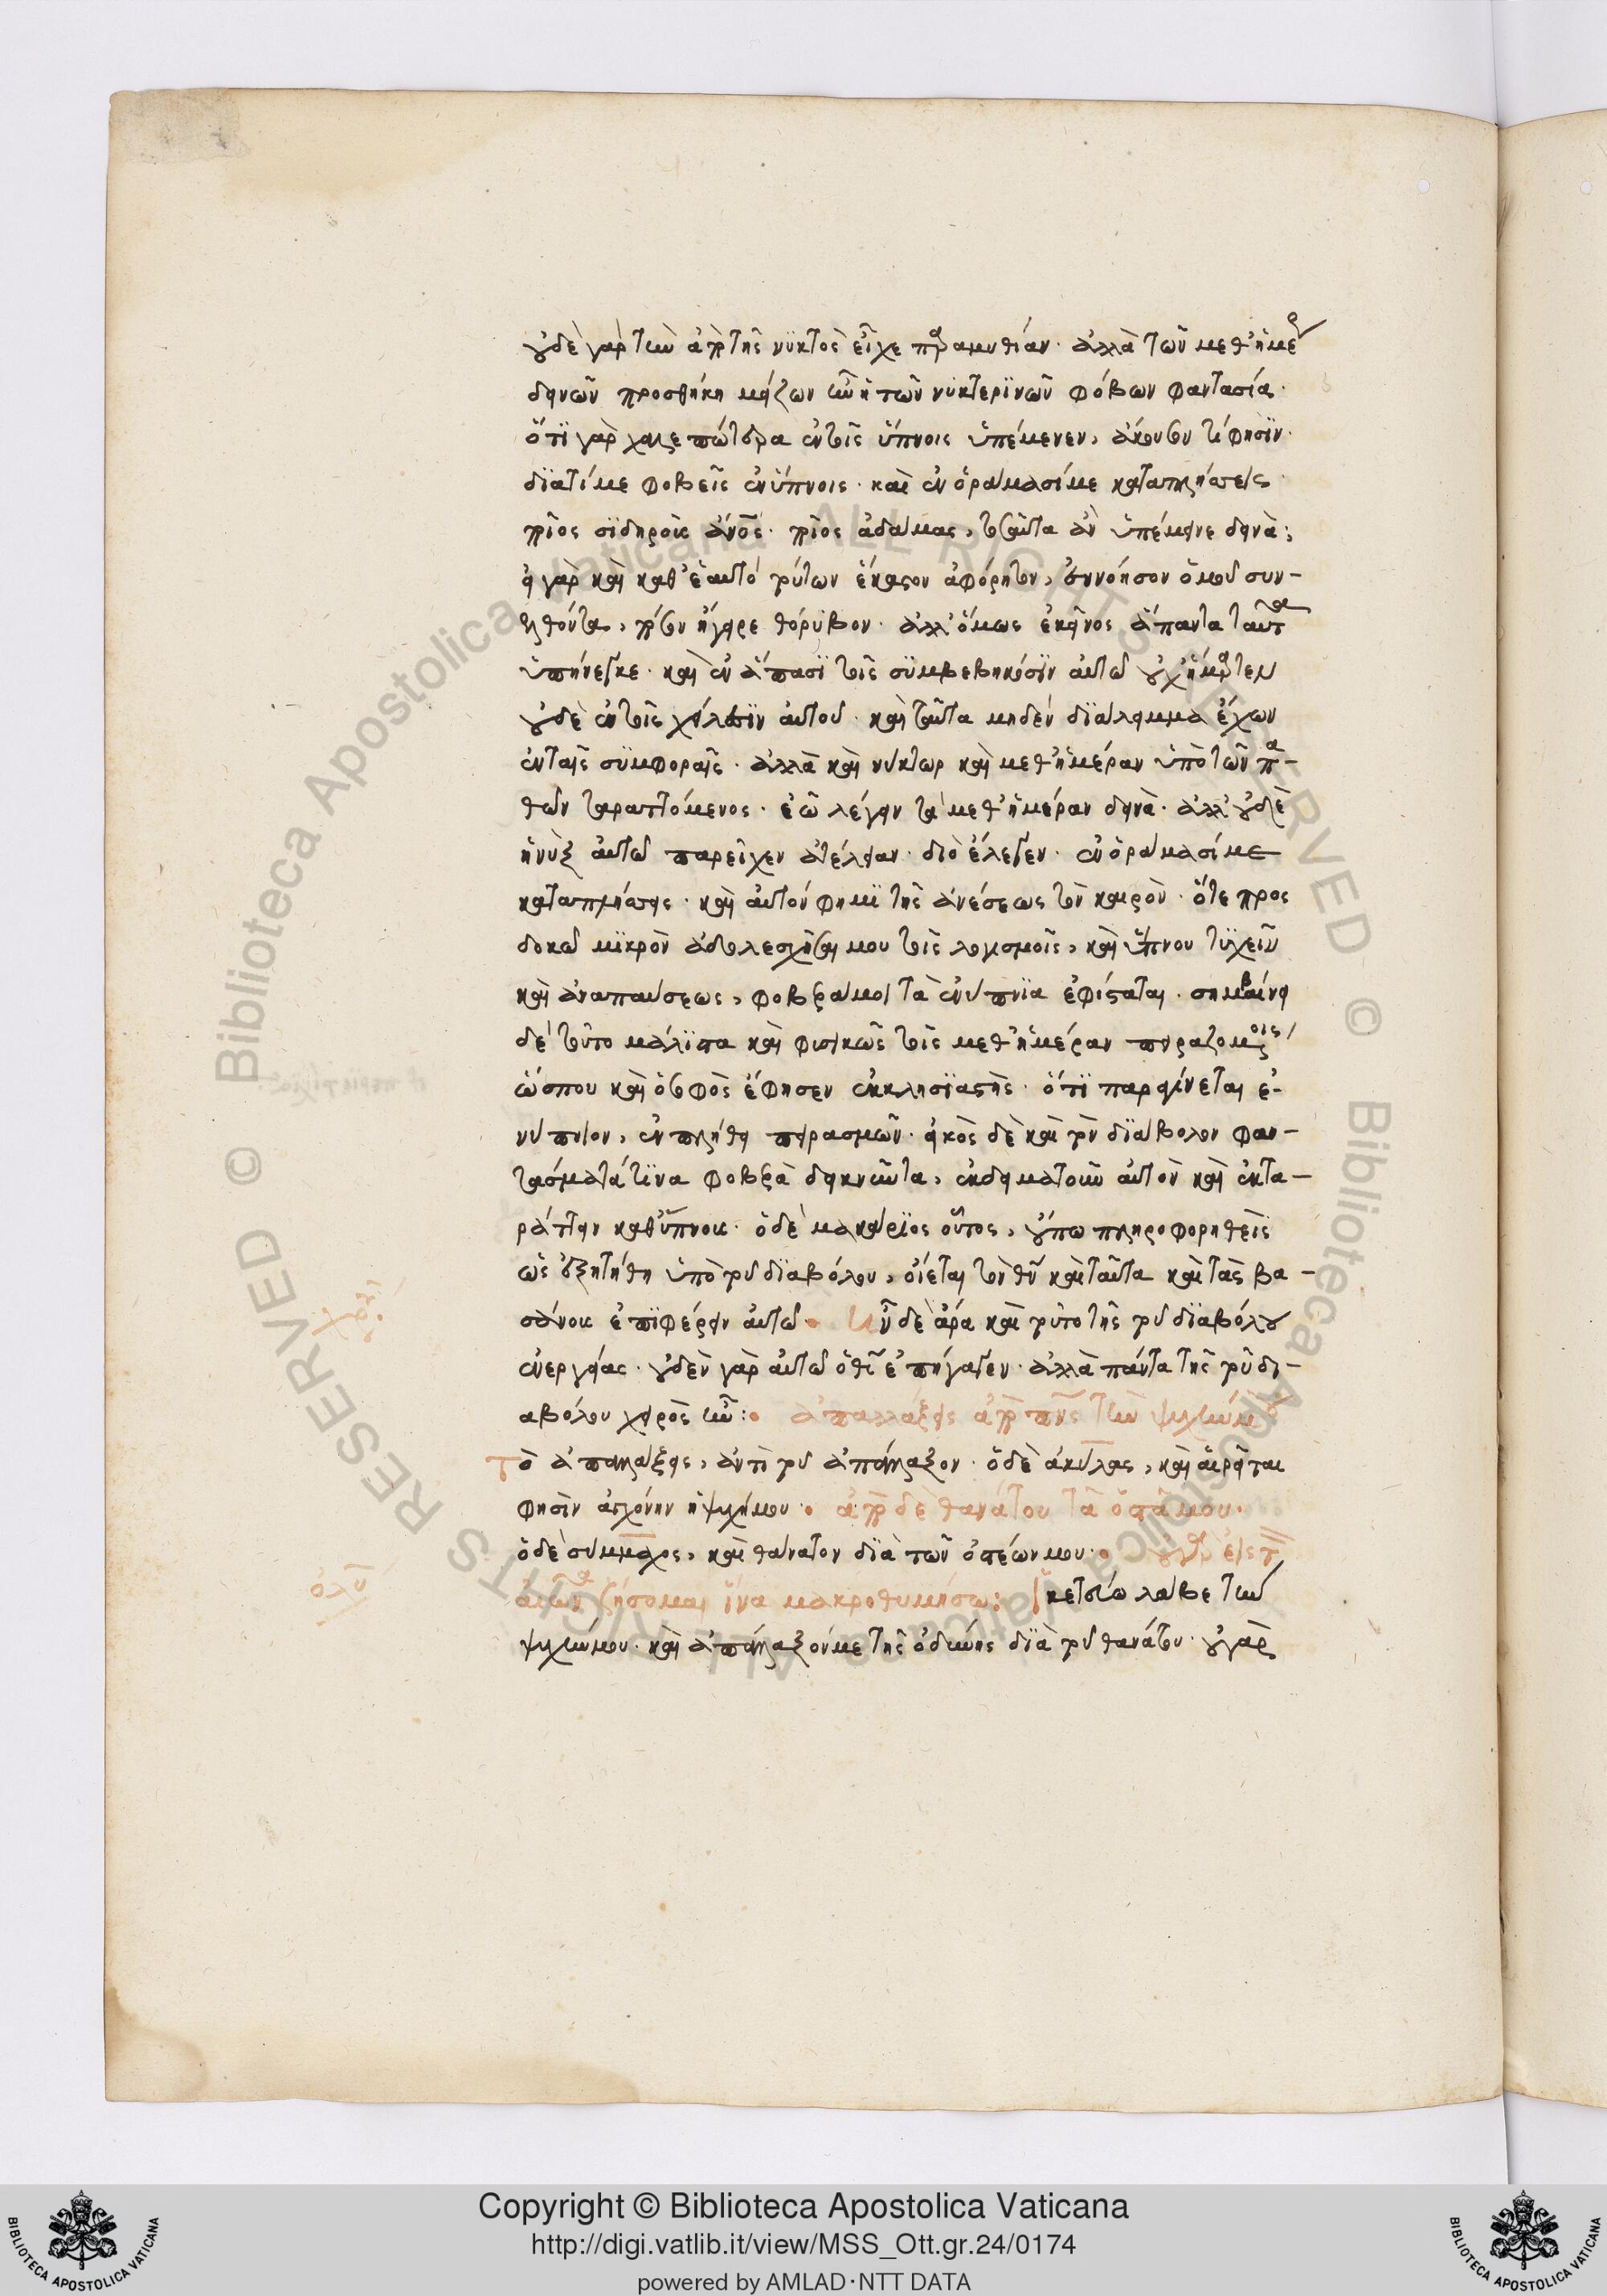 οὐδὲ γὰρ τὴν ἀπὸ τῆς νυκτὸς εἶχε παραμυθίαν· ἀλλὰ τῶν μεθημε
δεινῶν προσθήκη μείζων ἦν ἡ τῶν νυκτερϊνῶν φόβων φαντασία·
ὅτϊ γὰρ χαλεπώτερα ἐν τοῖς ὕπνοις ὑπέμενεν, ἄκουσον τί φησϊν·
δϊατί με φοβεῖς ἐνύπνοις· καὶ ἐν ὁράμασί με καταπλήσσεις·
ποῖος σϊδηροῦς ἄνος· ποῖος ἀδάμας, τοσαῦτα ἂν ὑπέμεινε δεινά;
εἰ γὰρ καὶ καθ' ἑαυτὸ τούτων ἕκαστον ἀφόρητον, ἐννόησον ὁμοῦ συν-
ελθόντα, πόσον ἤγειρε θόρυβον· ἀλλ' ὅμως ἐκεῖνος ἅπαντα ταῦτα
ὑπήνεγκε· καὶ ἐν ἅπασϊ τοῖς συμβεβηκόσϊν αὐτῶ οὐχ ἥμαρτεν
οὐδὲ ἐν τοῖς χείλεσϊν αὐτοῦ· καὶ ταῦτα μηδὲν δϊάλειμμα ἔχων
ἐν ταῖς συμφοραῖς· ἀλλὰ καὶ νύκτωρ καὶ μεθ' ἡμέραν ὑπὸ τῶν πα-
θῶν ταραττόμενος· ἐῶ λέγειν τὰ μεθ' ἡμέραν δεινά· ἀλλ' οὐδὲ
ἡ νὺξ αὐτῶ παρεῖχεν ἀτέλειαν· διὸ ἔλεγεν· ἐν ὁράμασί με
καταπλήσσεις· καὶ αὐτόν φημϊ τῆς ἀνέσεως τὸν καιρὸν· ὅτε προσ
δοκῶ μϊκρὸν ἀδολεσχῆσαί μου τοῖς λογισμοῖς, καὶ ὕπνου τυχεῖν
καὶ ἀναπαύσεως, φοβερά μοι τὰ ἐνύπνϊα ἐφίσταται· σημαίνει
δὲ τοῦτο μάλϊστα καὶ φυσικῶς τοῖς μεθ' ἡμέραν πειραζομένοις
ὥς που καὶ ὁ σοφὸς ἔφησεν ἐκκλησϊαστής· ὅτϊ παραγίνεται ἐ-
νύπνιον, ἐν πλήθει πειρασμῶν· εἰκὸς δὲ καὶ τὸν δϊάβολον φαν-
τάσματά τϊνα φοβερὰ δεικνῦντα, ἐκδειματοῦν αὐτὸν καὶ ἐκτα-
ράττειν καθ' ὕπνους· ὁ δὲ μακάρϊος οὗτος, οὔπω πληροφορηθεὶς
ὡς ἐξῃτήθη ὑπὸ τοῦ δϊαβόλου, οἴεται τὸν θν καὶ ταῦτα καὶ τὰς βα-
σάνους ἐπϊφέρειν αὐτῶ· ἦν δὲ ἄρα καὶ τοῦτο τῆς τοῦ δϊαβόλου
ἐνεργείας· οὐδὲν γὰρ αὐτῶ ὁ θς ἐπήγαγεν· ἀλλὰ πάντα τῆς τοῦ δι-
αβόλου χειρὸς ἦν: ἀπαλλάξεις ἀπὸ πνς τὴν ψυχήν μου
τὸ ἀπαλλάξεις, ἀντὶ τοῦ ἀπάλλαξον· ὁ δὲ ἀκύλας, καὶ αἱρεῖται
φησὶν ἀγχόνην ἡ ψυχή μου· ἀπὸ δὲ θανάτου τὰ ὀστᾶ μου·
ὁ δὲ σύμμαχος, καὶ θάνατον δϊὰ τῶν ὀστέων μου· οὐ γὰρ εἰς τὸν
αἰῶνα ζήσομαι ἵνα μακροθυμήσω: ἱκετεύω λάβε τὴν
ψυχήν μου· καὶ ἀπάλλαξόν με τῆς ὀδύνης δϊὰ τοῦ θανάτου· οὐ γὰρ
Copyright © Biblioteca Apostolica Vaticana
http://digi.vatlib.it/view/MSS_Ott.gr.24/0174
powered by AMLAD·NTT DATA